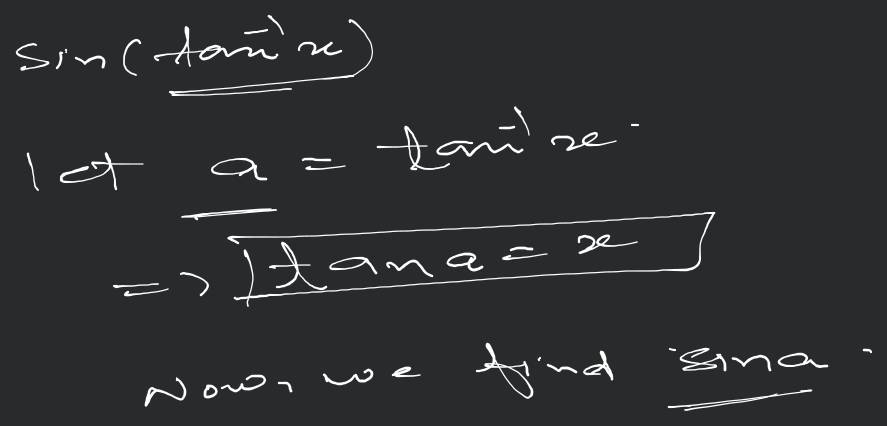 sin(tan⁻¹x)
let a = tan⁻¹x.
=> tana = x
Now, we find sina.